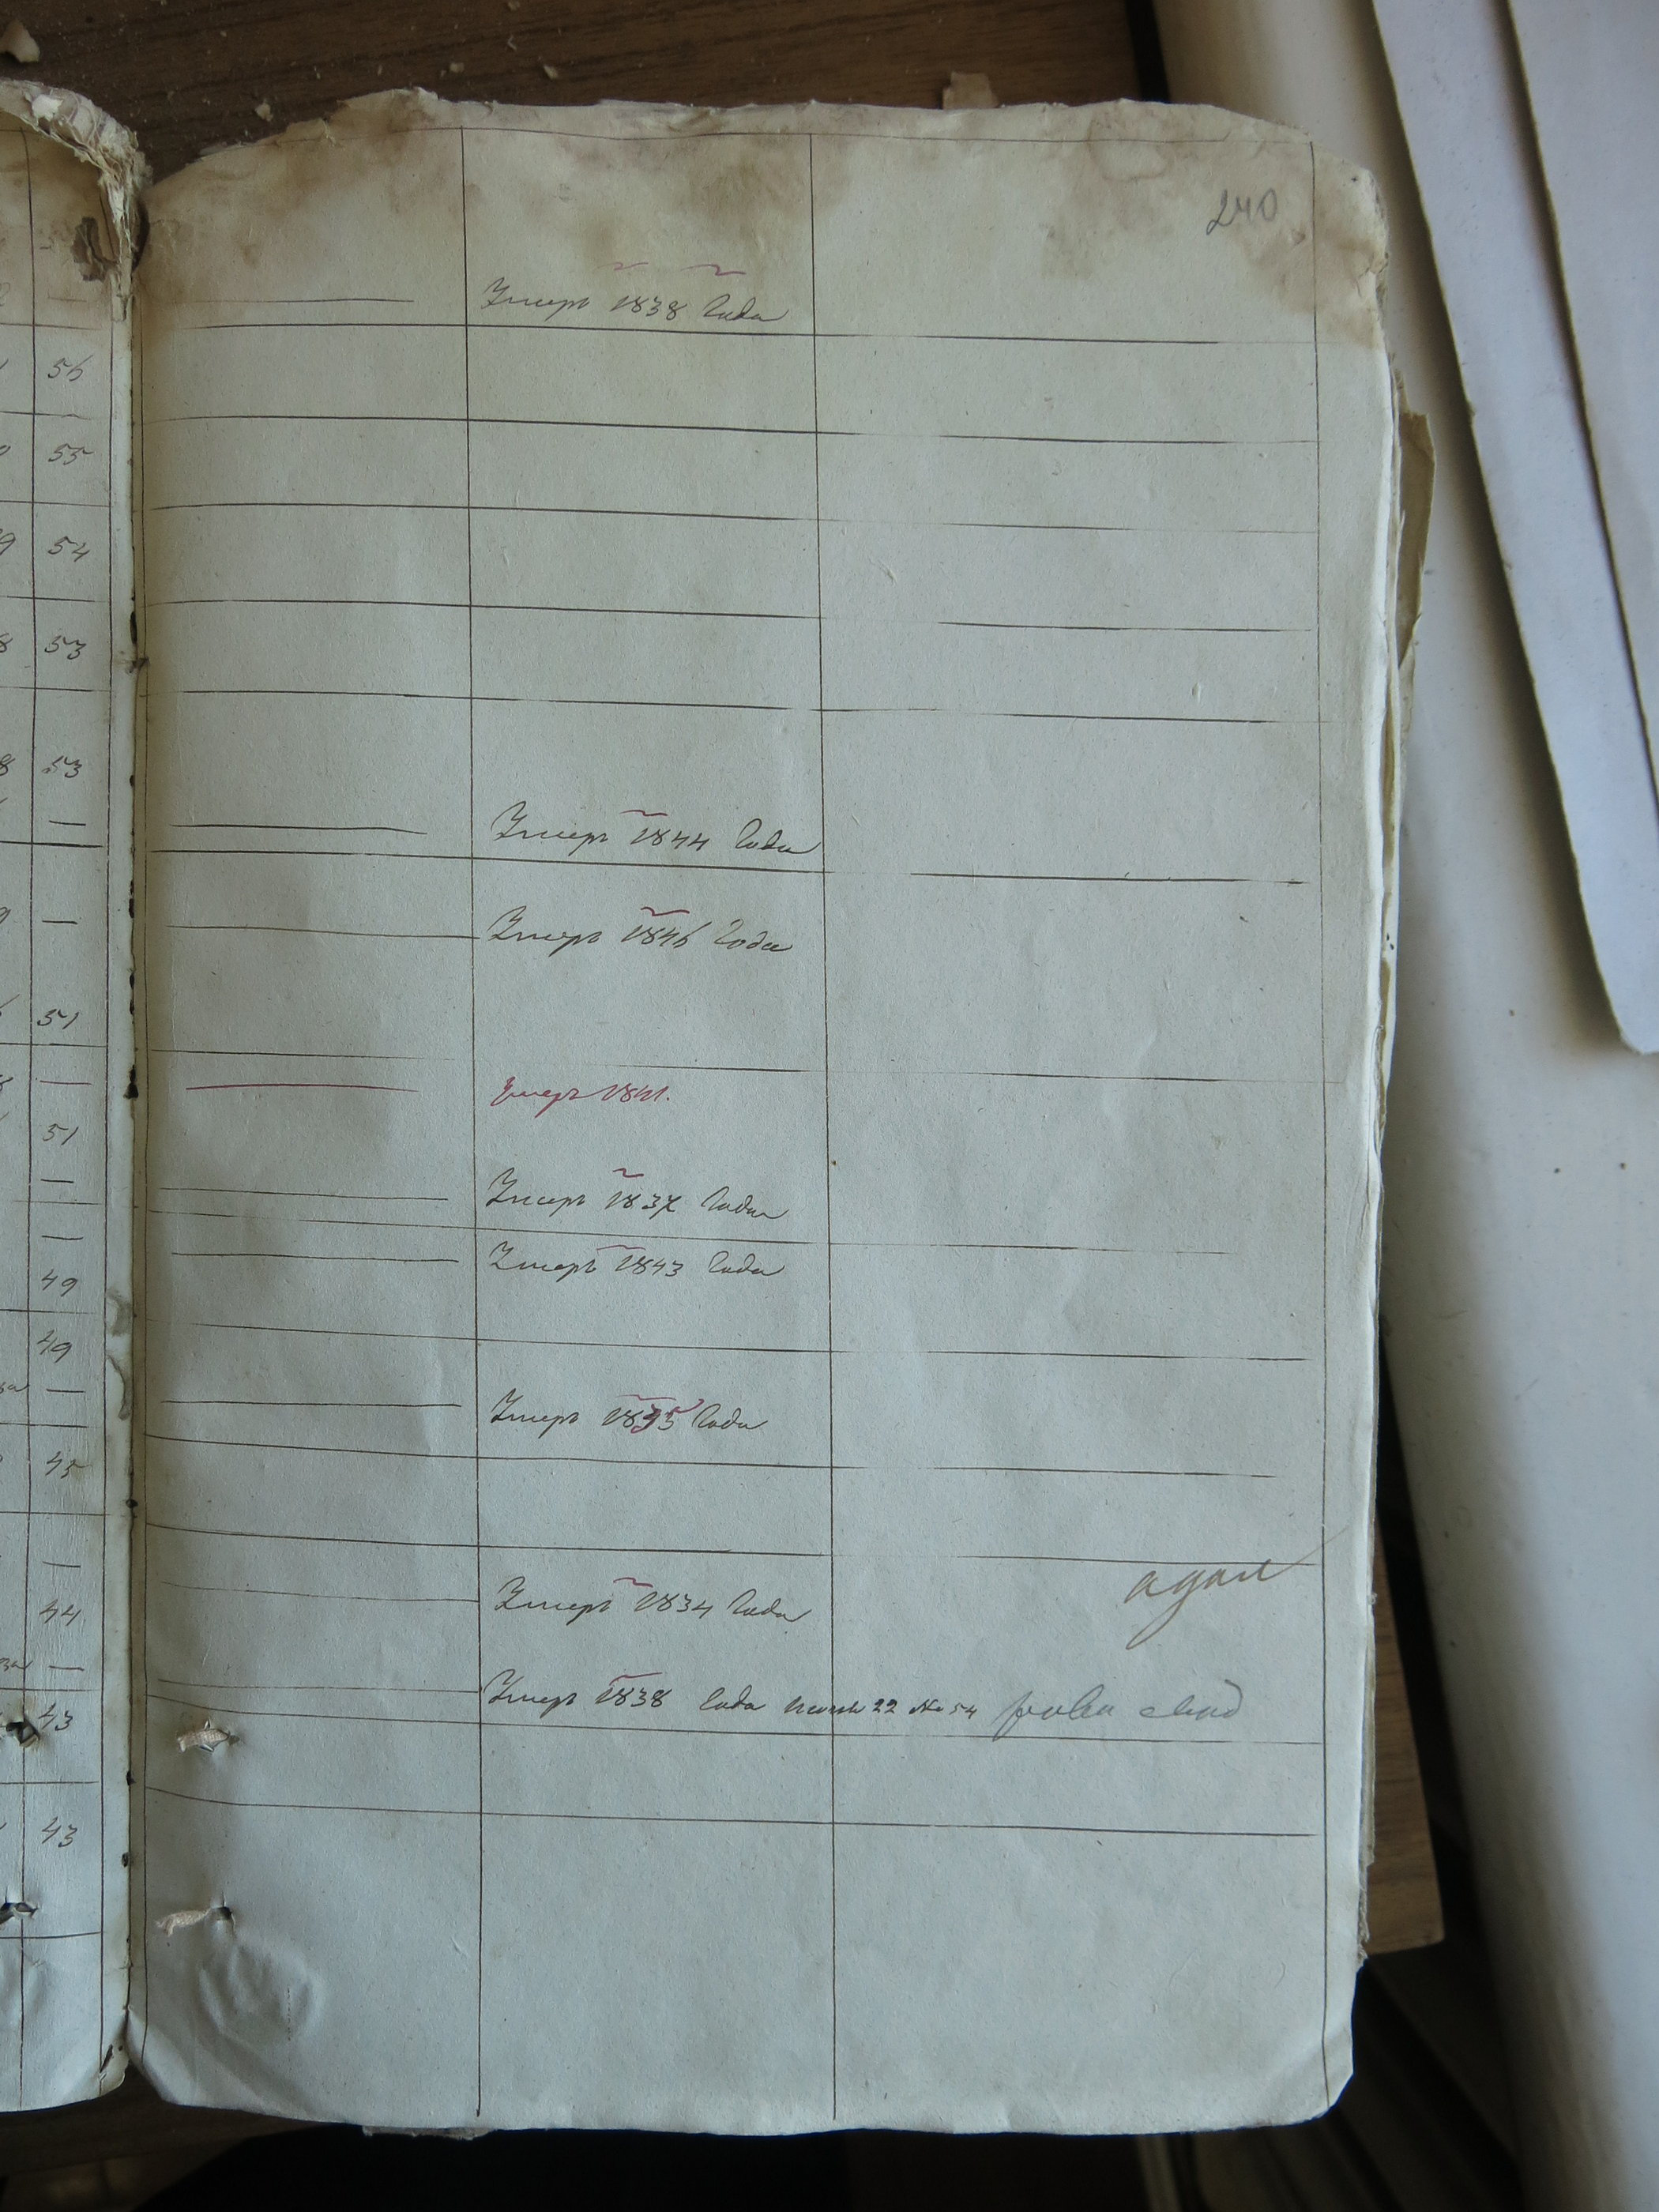 240
Умеръ 1838 года
56
55
54
53
53
Умеръ 1844 года
Умеръ 1846 года
51
Умеръ 1841.
51
Умеръ 1837 года
Умеръ 1843 года
49
49
Умеръ 1835 года
45
Умеръ 1834 года
44
Умеръ 1838 года июля 22 № 54
43
43